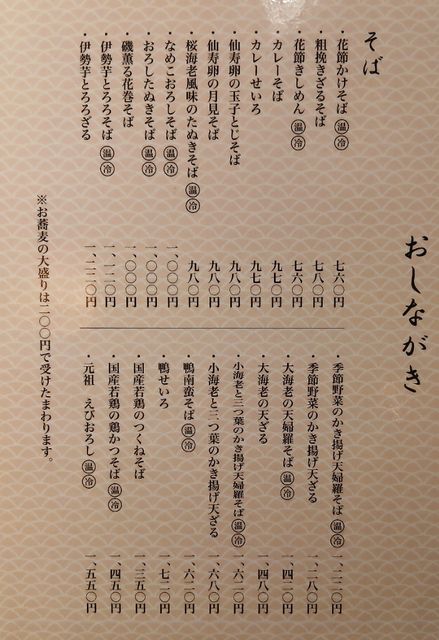 おしながき
そば
・花節かけそば㊎温冷 七六〇円
・粗挽きざるそば 七八〇円
・花節きしめん 温 冷 七六〇円
・カレーそば 九七〇円
・カレーせいろ 九七〇円
・仙寿卵の玉子とじそば 九八〇円
・仙寿卵の月見そば 九八〇円
・桜海老風味のたぬきそば 温 冷 九八〇円
・なめこおろしそば 温 冷 一、〇〇〇円
・おろしたぬきそば 温 冷 一、〇〇〇円
・磯薫る花巻そば 一、〇〇〇円
・伊勢芋とろろそば 温 冷 一、一二〇円
・伊勢芋とろろざる 一、二二〇円
・季節野菜のかき揚げ天婦羅そば 温 冷 一、二二〇円
・季節野菜のかき揚げ天ざる 一、二八〇円
・大海老の天婦羅そば 温 冷 一、四二〇円
・大海老の天ざる 一、四八〇円
・小海老と三つ葉のかき揚げ天婦羅そば 温 冷 一、六二〇円
・小海老と三つ葉のかき揚げ天ざる 一、六八〇円
・鴨南蛮そば 温 冷 一、六二〇円
・鴨せいろ 一、七二〇円
・国産若鶏のつくねそば 一、三五〇円
・国産若鶏の鶏かつそば 温 冷 一、四五〇円
・元祖 えびおろし 温 冷 一、五五〇円
※お蕎麦の大盛りは二〇〇円で受けたまわります。